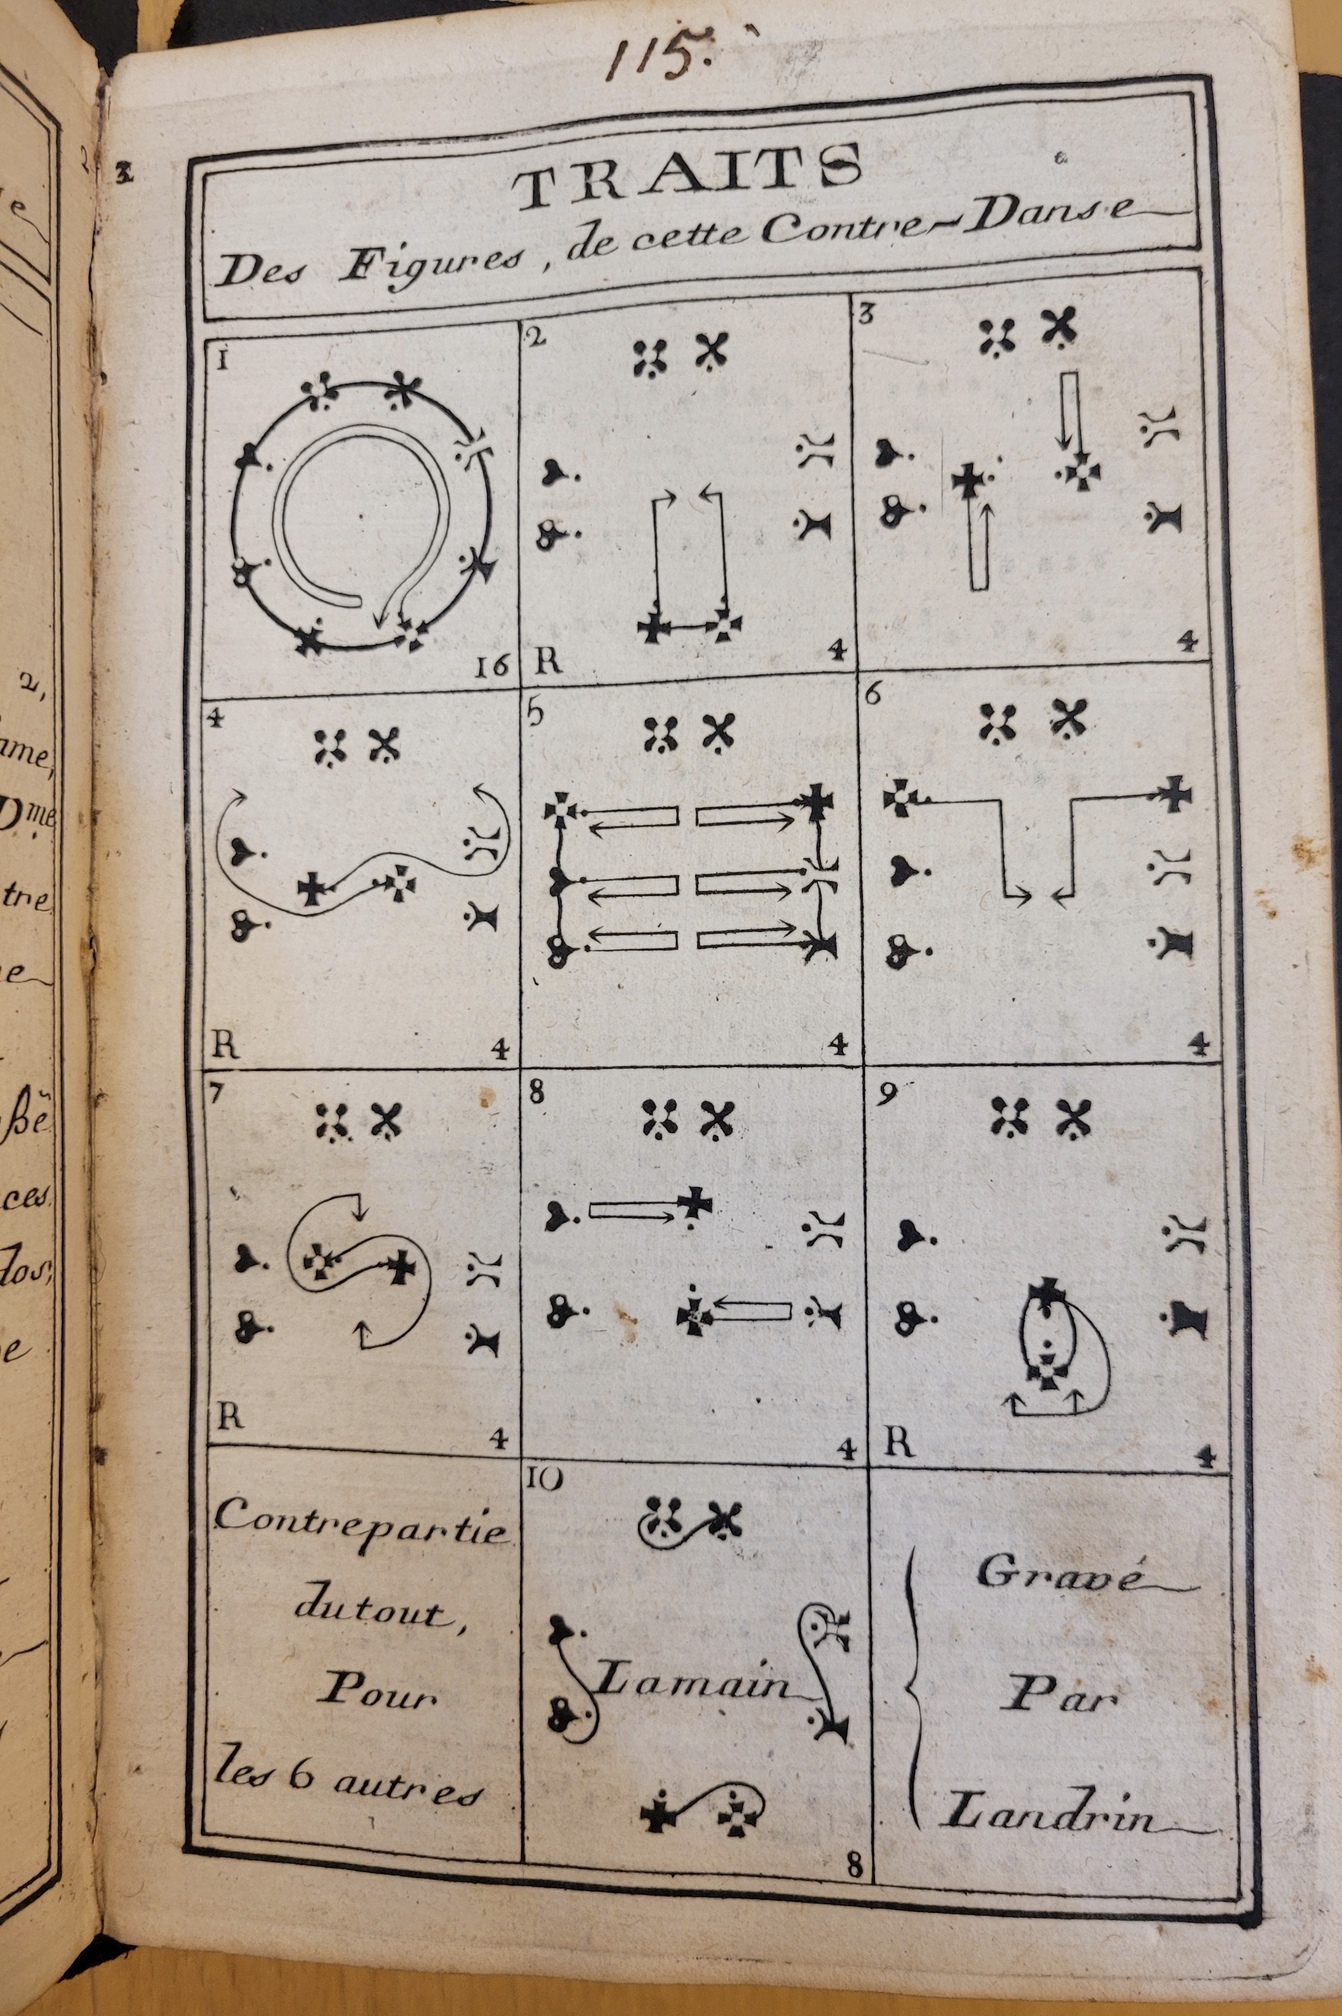 115.
3
TRAITS
Des Figures, de cette Contre-Danse
1
16
2
R
4
3
4
4
R
4
5
4
6
4
7
R
4
8
4
9
R
4
Contrepartie
dutout,
Pour
les 6 autres
10
Lamain
8
Gravé
Par
Landrin
e
2,
ame,
Dme
tre
e
ßé
ces
dos,
e